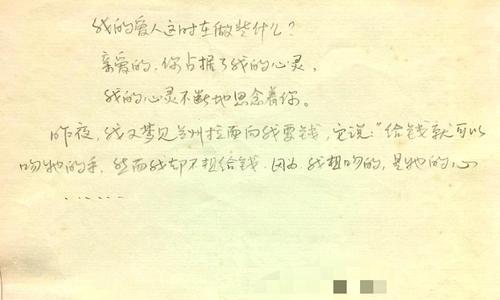 我的爱人这时在做些什么？
亲爱的，你占据了我的心灵，
我的心灵不断地思念着你。
昨夜，我又梦见兰州拉面向我要钱，它说：“给钱就可以
吻她的手，然而我却不想给钱，因为，我想吻的，是她的心
……